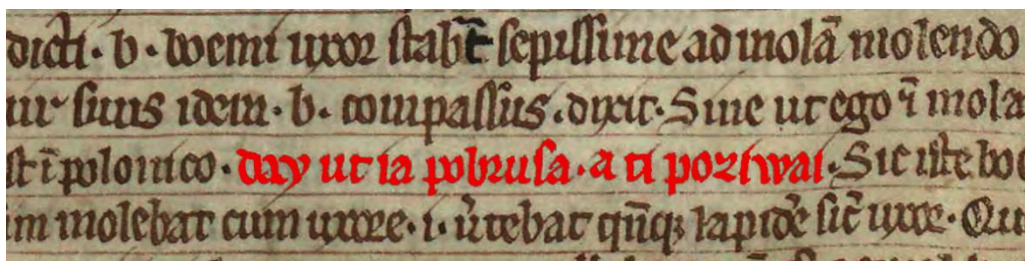 dicti · b · boemi uxor stabat sepissime ad molā molendo
ur suus idem · b · compassus · dixit · Sine ut ego ī mola
st ī polonico · day ut ia pobrusa · a ti poziwai · Sic iste bo
im molebat cum uxore · i · v̓tebat quēq; lapidē sic̄ uxor · Qu